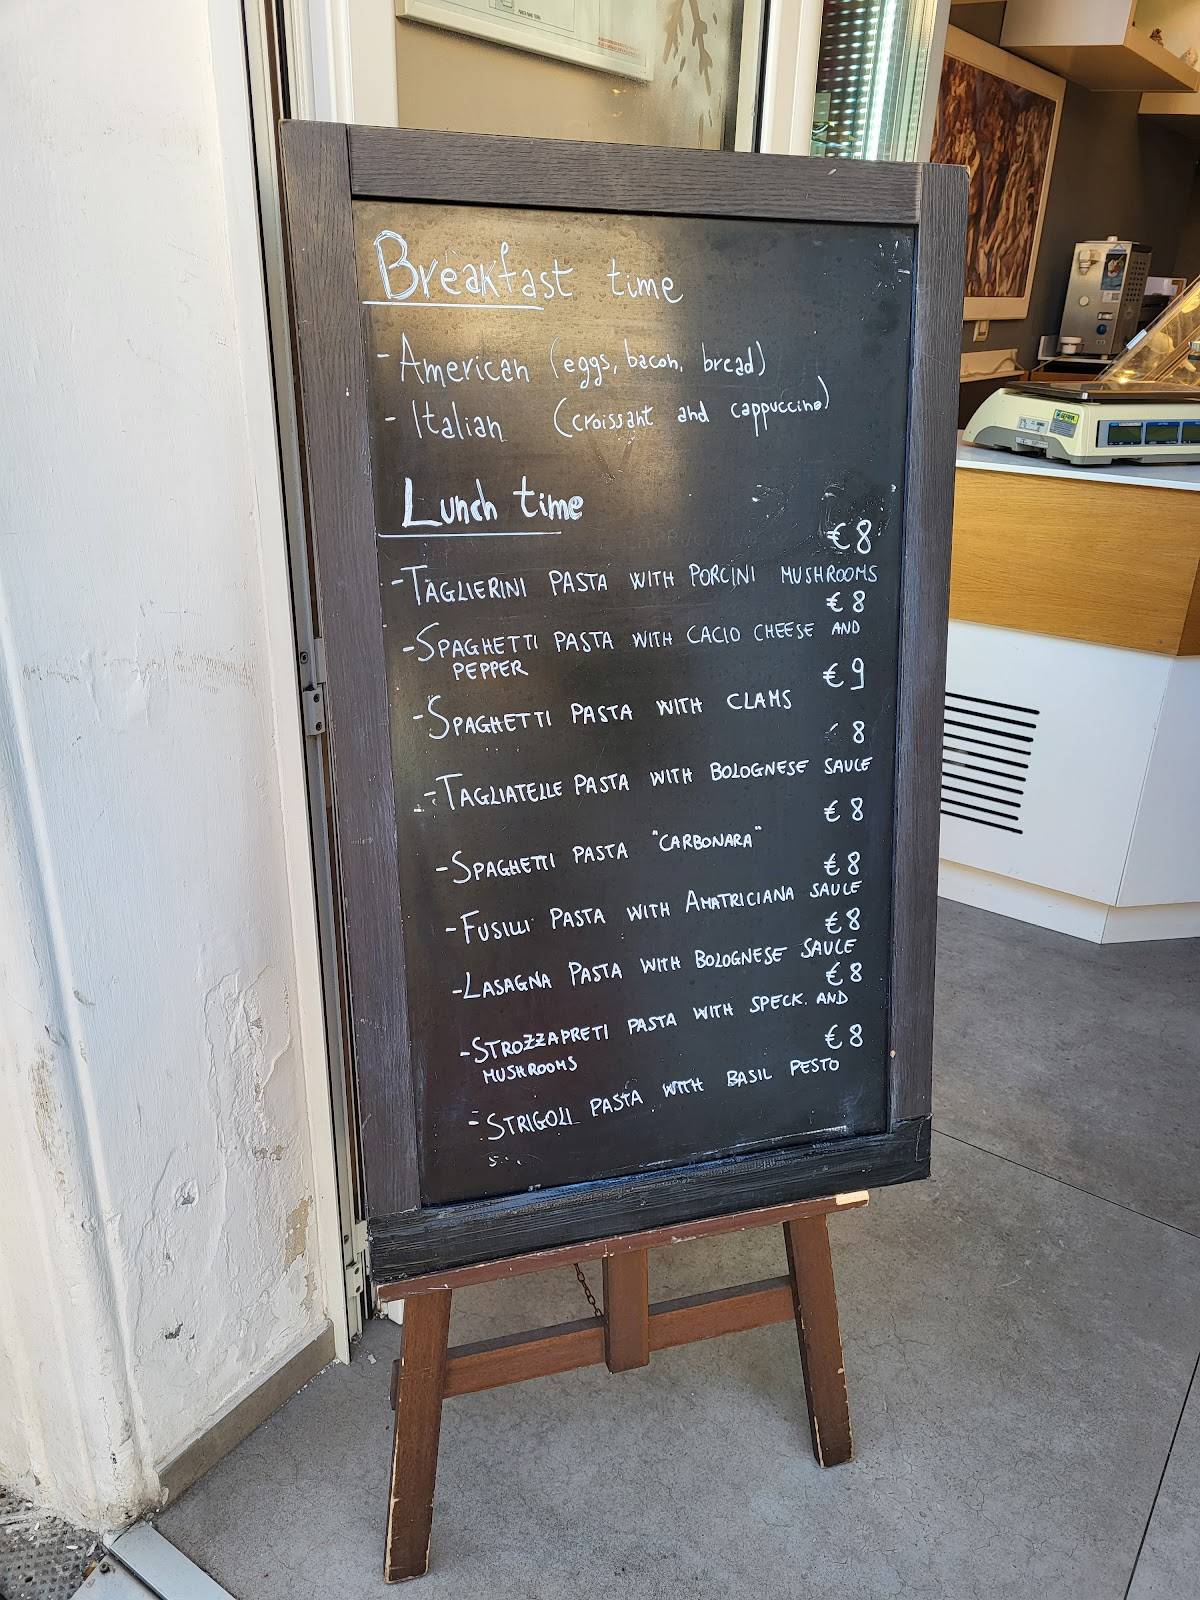 Breakfast time
- American (eggs, bacon, bread)
- Italian (croissant and cappuccino)
Lunch time
€ 8
- TAGLIERINI PASTA WITH PORCINI MUSHROOMS
€ 8
- SPAGHETTI PASTA WITH CACIO CHEESE AND
PEPPER
€ 9
- SPAGHETTI PASTA WITH CLAMS
8
- TAGLIATELLE PASTA WITH BOLOGNESE SAUCE
€ 8
- SPAGHETTI PASTA "CARBONARA"
€ 8
- FUSILLI PASTA WITH AMATRICIANA SAUCE
€ 8
- LASAGNA PASTA WITH BOLOGNESE SAUCE
€ 8
- STROZZAPRETI PASTA WITH SPECK. AND
MUSHROOMS
€ 8
- STRIGOLI PASTA WITH BASIL PESTO